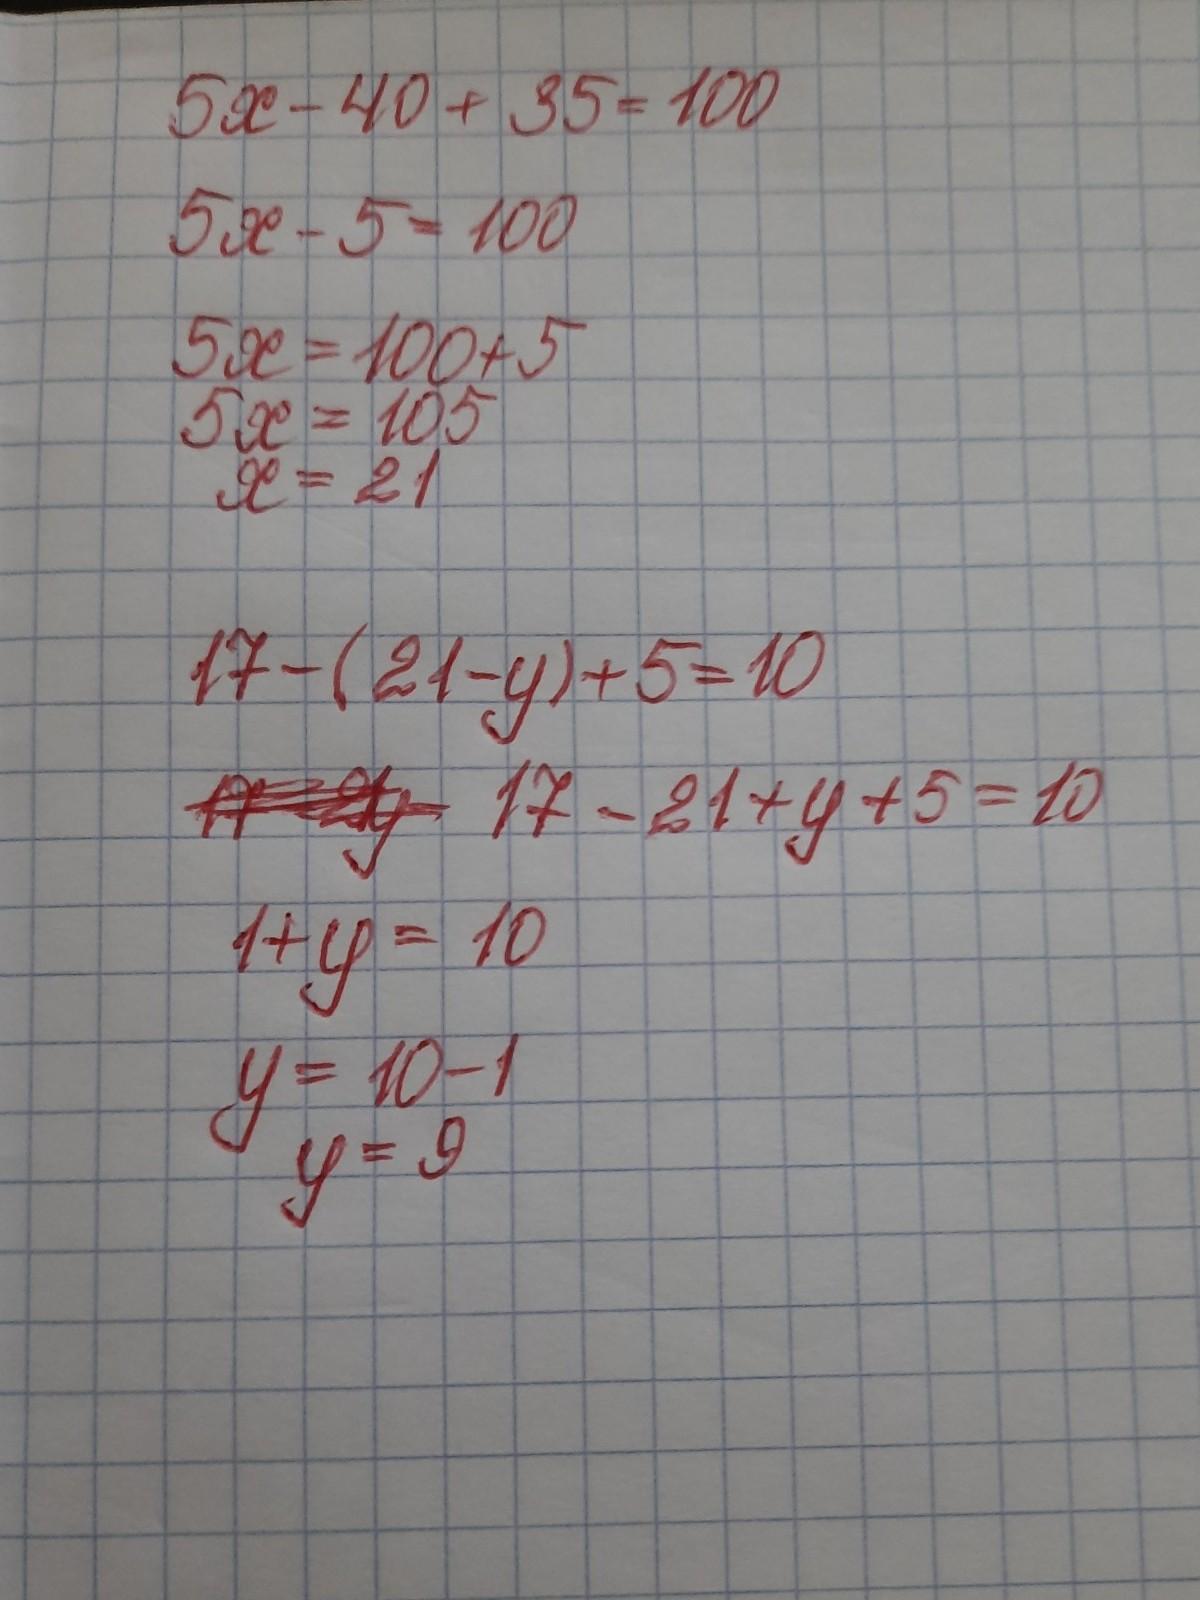 5x - 40 + 35 = 100
5x - 5 = 100
5x = 100 + 5
5x = 105
x = 21
17 - (21 - y) + 5 = 10
17 - 21 + y + 5 = 10
1 + y = 10
y = 10 - 1
y = 9